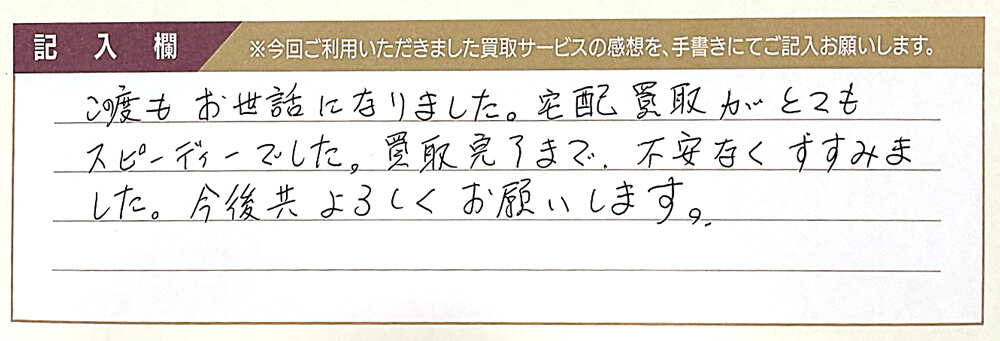 記入欄 ※今回ご利用いただきました買取サービスの感想を、手書きにてご記入お願いします。
この度も お世話になりました。宅配買取がとても
スピーディーでした。買取完了まで、不安なくすすみま
した。今後共よろしくお願いします。